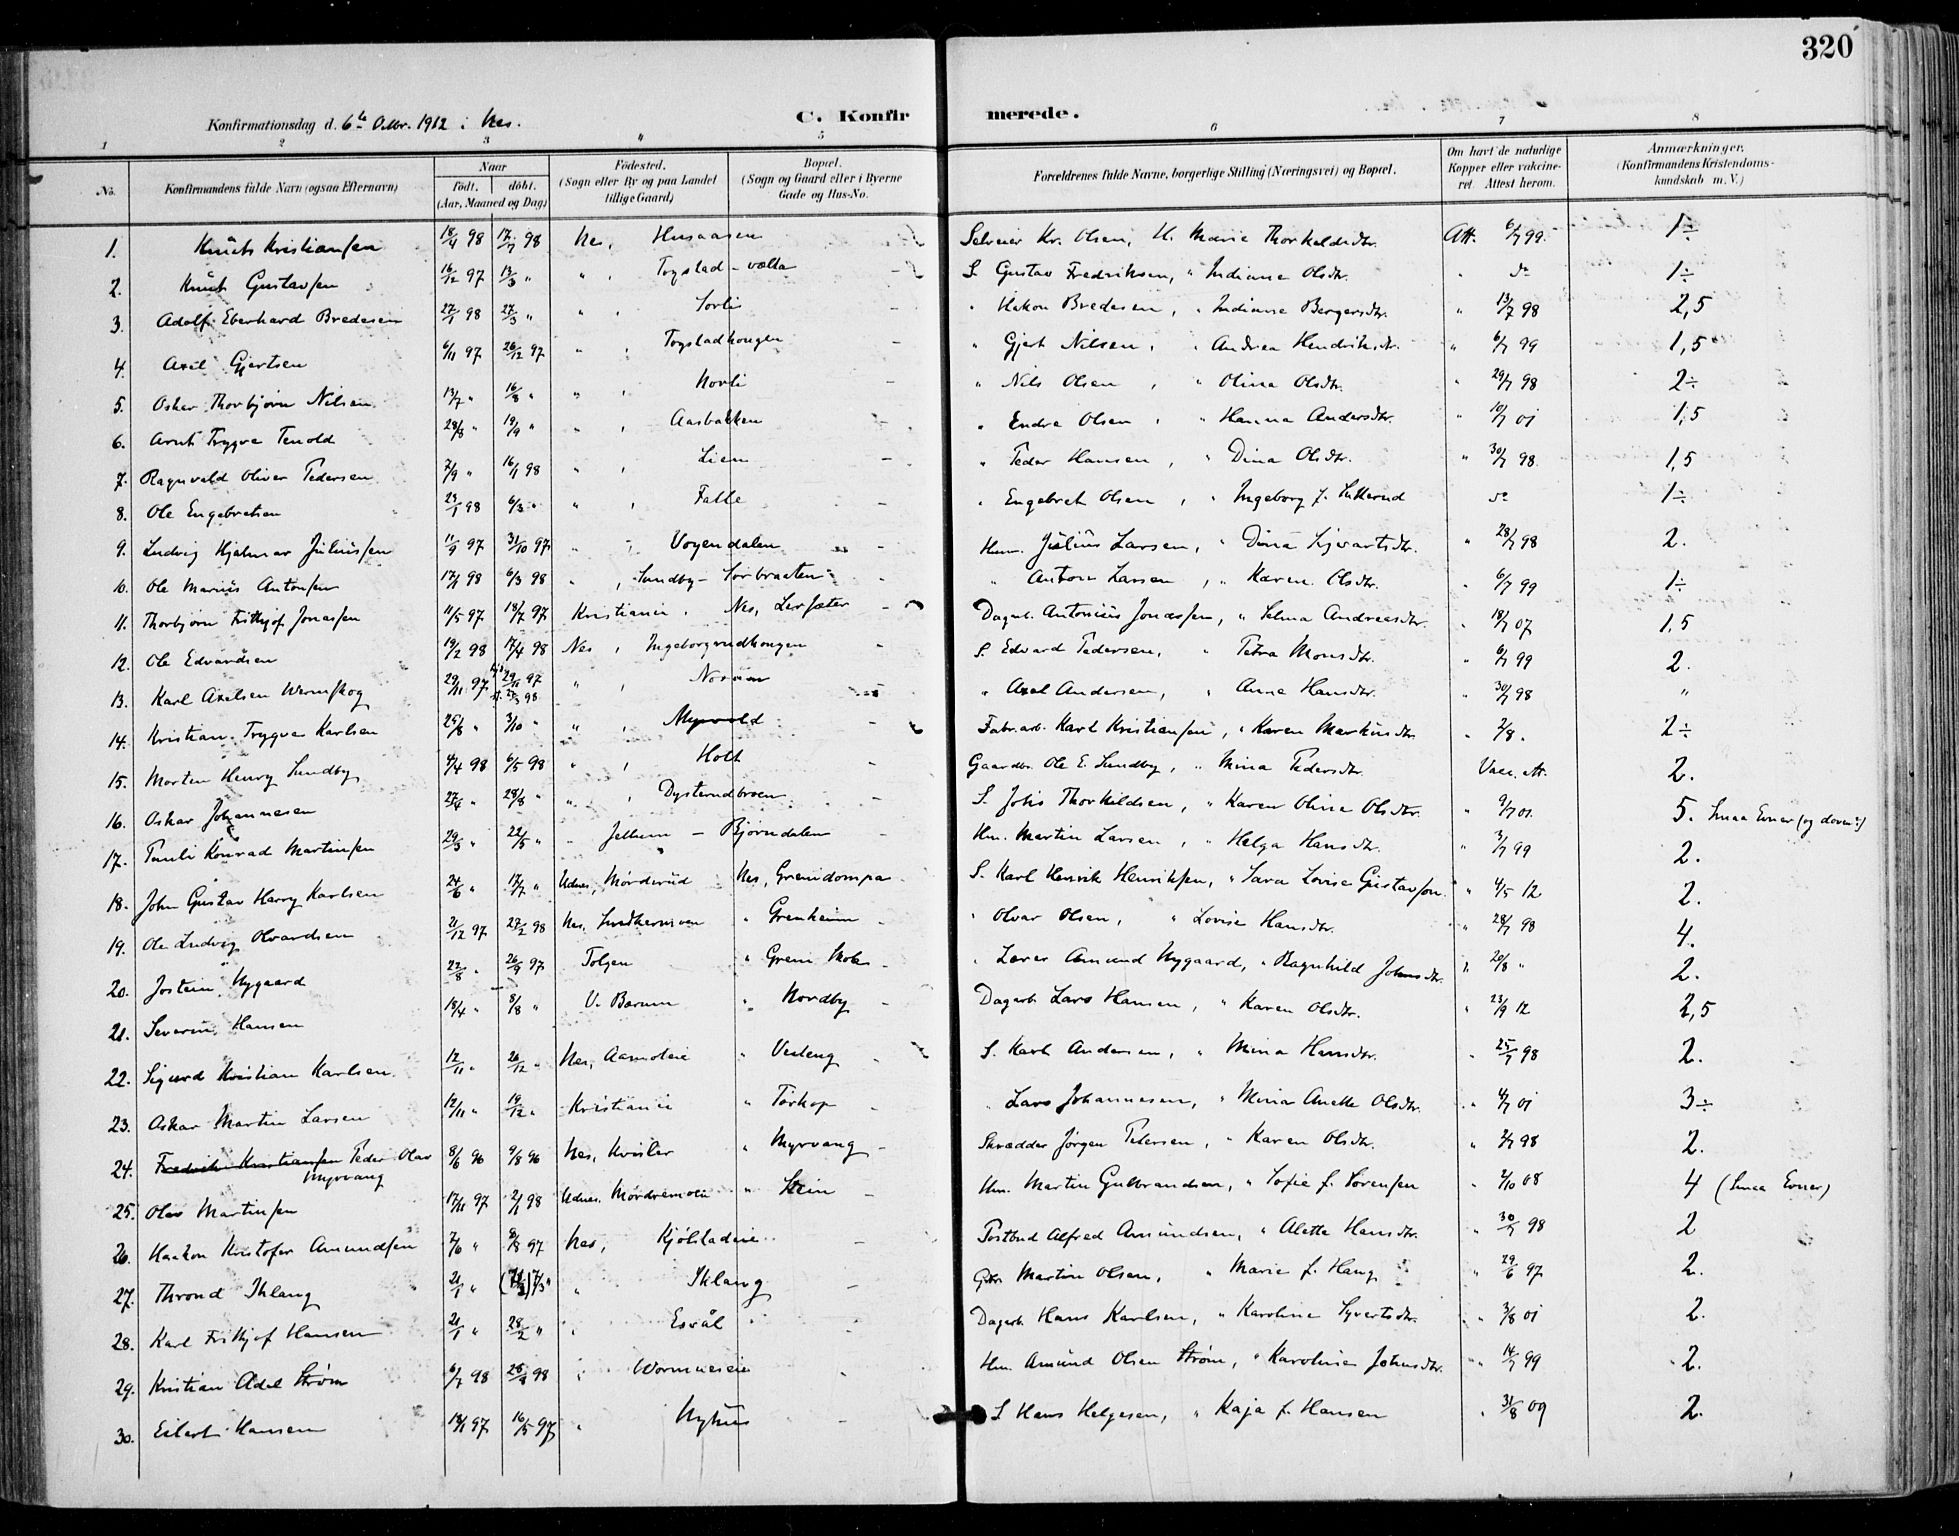 320
Konfirmationsdag d. 6te Octbr. 1912 i Nes. C. Konfirmerede.
1 2 3 4 5 6 7 8
No. Konfirmandens fulde Navn (ogsaa Efternavn) Naar födt. döbt. (Aar, Maaned og Dag) Födested. (Sogn eller By og paa Landet tillige Gaard) Bopæl. (Sogn og Gaard eller i Byerne Gade og Hus-No. Forældrenes fulde Navne, borgerlige Stilling (Næringsvei) og Bopæl. Om havt de naturlige Kopper eller vakcineret. Attest herom. Anmærkninger. (Konfirmandens Kristendomskundskab m. V.)
1. Knut Kristiansen 18/4 98 17/7 98 Nes, Husaasen Selveier Kr. Olsen, H. Marie Thorkeldsdtr. Att. 6/7 99. 1÷
2. Knut Gustavsen 16/12 97 13/3 " " , Togstad-vælta S. Gustav Fredriksen, " Indiane Olsdtr. " do 1÷
3. Adolf Eberhard Bredesen 27/1 98 27/3 " " , Sorli " Hakon Bredesen, " Indiane Bergersdtr. " 13/7 98 2,5
4. Axel Gjertsen 6/11 97 26/12 97 " , Togstadhougen " Gjert Nilsen, " Andrea Hendriksdtr. " 6/7 99 1,5
5. Oskar Thorbjørn Nilsen 13/7 " 16/8 " " , Norli " Nils Olsen, " Olina Olsdtr. " 29/7 98 2÷
6. Arnt Trygve Tenold 28/8 " 19/9 " " , Aasbakken " Endre Olsen, " Hanna Andersdtr. " 10/7 01 1,5
7. Ragnvald Oliver Pedersen 7/9 " 16/1 98 " , Lien " Peder Hansen, " Dina Olsdtr. " 30/7 98 1,5
8. Ole Engebretsen 23/1 98 6/3 " " , Falle " Engebret Olsen, " Ingeborg f. do 1÷
9. Ludvig Hjalmar Juliussen 11/9 97 31/10 97 " , Voyendalen Hm. Julius Larsen, " Dina Sigvartsdtr. " 28/7 98 2.
10. Ole Marius Antonsen 17/1 98 6/3 98 " , Sundby- Sørbraaten " Anton Larsen, " Karen Olsdtr. " 6/7 99 1÷
11. Thorbjørn Frithjof Jonassen 11/5 97 18/7 97 Kristiania, Nes, Lersæter Dagarb. Antonius Jonassen, " Selma Andreasdtr. " 18/7 07 1,5
12. Ole Edvardsen 19/2 98 17/4 98 Nes, Ingeborgrudhougen S. Edvard Pedersen, " Petra Monsdtr. " 6/7 99 2.
13. Karl Axelsen Wernskog 29/11 97 29/11 97 98 " , " Axel Andersen, " Anna Hansdtr. " 30/7 98 "
14. Kristian Trygve Karlsen 25/8 " 3/10 " " , Myrvold Fabr.arb. Karl Kristiansen, " Karen Markusdtr " 2/8 " 2÷
15. Morten Henry Sundby 4/4 98 6/5 98 " , Holt Gaardbr. Ole E. Sundby, " Mina Pedersdtr. Vacc. att. 2.
16. Oskar Johannesen 27/4 " 28/8 " " , Dysterudbroen S. Johs Thorkildsen, " Karen Oline Olsdtr. " 9/7 01. 5. Smaa Evner (og doven!)
17. Pauli Konrad Martinsen 29/3 " 22/5 " " Jelhem - Bjørndalen Hm. Martin Larsen, " Helga Hansdtr. " 3/7 99 2.
18. John Gustav Harry Karlsen 24/6 " 17/7 " Udnes, Mørderud Nes, Grendompa S. Karl Henrik Henriksen, " Sara Lovise Gustavson " 4/5 12 2.
19. Ole Ludvig Olvardsen 21/12 97 27/2 98 Nes, " Grenheim " Olvar Olsen, " Lovise Hansdtr. " 28/7 98 4.
20. Jostein Nygaard 22/8 " 26/9 97 Tolgen " Greni Skole " Lærer Amund Nygaard, " Ragnhild Johnsdtr. " 20/8 " 2.
21. Severin Hansen 18/4 " 8/8 " V. Bærum " Nordby Dagarb. Lars Hansen, " Karen Olsdtr. " 23/9 12 2,5
22. Sigurd Kristian Karlsen 12/11 " 26/12 " Nes, Aamoteie " Vesleng S. Karl Andersen, " Mina Hansdtr. " 25/7 98 2.
23. Oskar Martin Larsen 12/11 " 19/12 " Kristiania " Torkop " Lars Johannesen, " Mina Anette Olsdtr. " 4/7 01 3÷
24. Fredrik Kristiansen Peder Olav Myrvang 8/6 96 9/8 96 Nes, Kvisler " Myrvang Skrædder Jørgen Petersen, " Karen Olsdtr. " 2/7 98 2.
25. Olav Martinsen 17/11 97 2/1 98 Udnes, Mördremoen " Stein Hm. Martin Gulbrandsen, " Sofie f. Sørensen " 2/10 08 4 (Smaa Evner)
26. Haakon Kristofer Amundsen 2/6 " 8/8 97 Nes, Kjölstadeie Postbud Alfred Amundsen, " Alette Hansdtr. " 30/7 98 2
27. Thrond Ihlang 21/1 " 7/3 " " Ihlang Gbr. Martin Olsen, " Marie f. Haug " 29/6 97 2.
28. Karl Frithjof Hansen 21/1 " 28/2 " " Esvål Dagarb. Hans Karlsen, " Karoline Syvertsdtr. " 3/8 01 2.
29. Kristian Adel Strøm 6/7 98 98 " Wormneseie Hm. Amund Olsen Strøm, " Karoline Johnsdtr. " 14/7 99 2.
30. Eilert Hansen 18/1 97 16/5 97 " Nyhus S Hans Helgesen, " Kaja f. Hansen " 31/8 09 2.